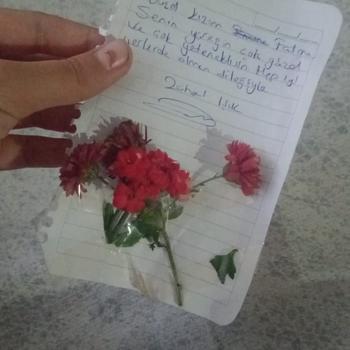 Güzel kızım Fatma
Senin yüreğin çok güzel
Ve çok yeteneklisin Hep iyi
yerlerde olman dileğiyle